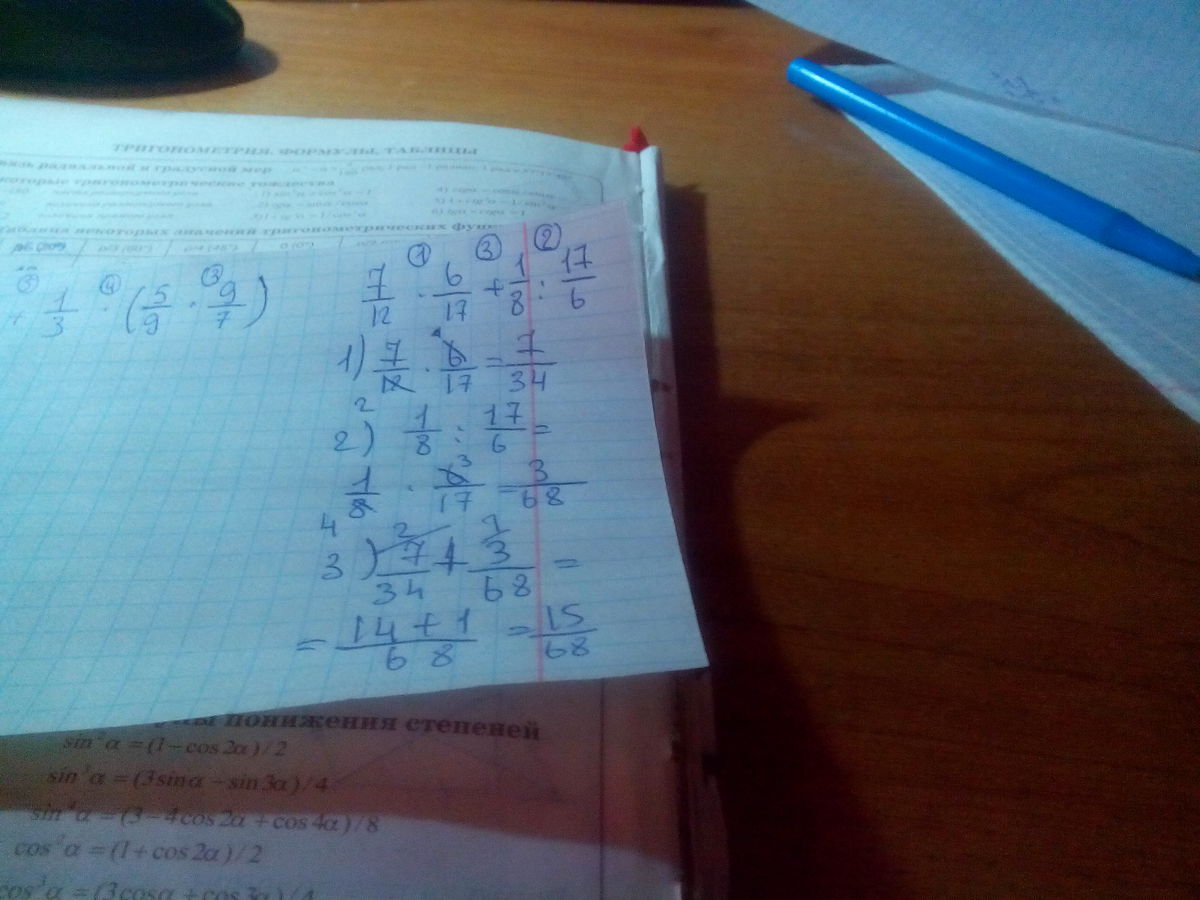 ТРИГОНОМЕТРИЯ. ФОРМУЛЫ. ТАБЛИЦЫ
радиальной и градусной мер
некоторые тригонометрические тождества
таблица некоторых значений тригонометрических
③ ④ ③
+ 1/3 · (5/9 · 9/7)
① ③ ②
7/12 · 6/17 + 1/8 : 17/6
1) 7/12 · 6/17 = 7/34
2
2) 1/8 : 17/6 =
1/8 · 6/17 3 = 3/68
4
3) 7/34 2 + 3/68 1 =
= 14 + 1/68 = 15/68
понижения степеней
sin²α = (1 − cos 2α) / 2
sin³α = (3sin α − sin 3α) / 4
sin⁴α = (3 − 4cos 2α + cos 4α) / 8
cos²α = (1 + cos 2α) / 2
cos³α = (3cos α + cos 3α) / 4